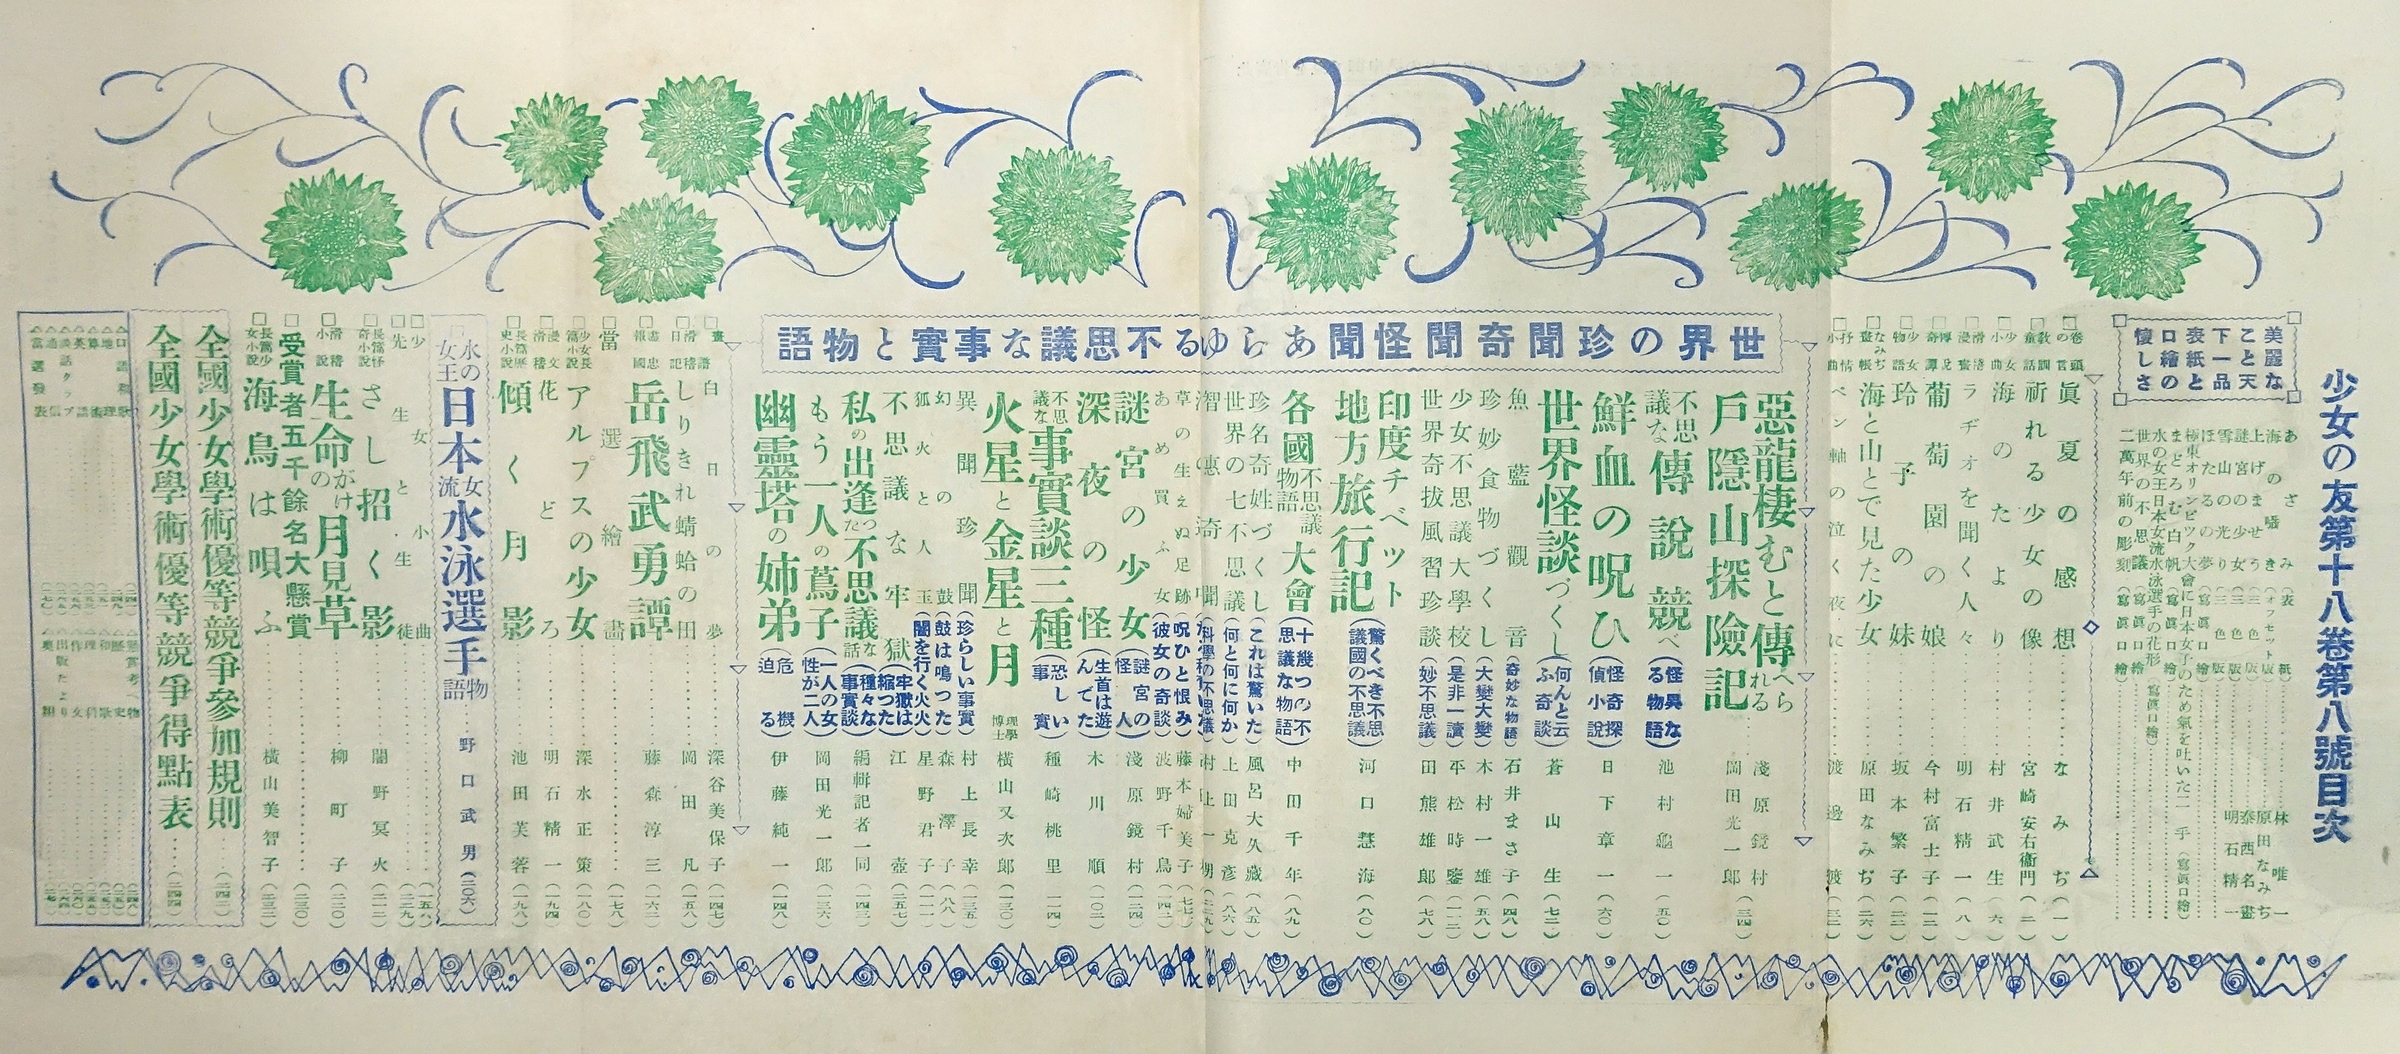 少女の友第十八卷第八號目次
美麗な
こと天
下一品
表紙と
口繪の
懷しさ
あさみ(表紙)…林唯一
海の囁き(オフセット版)…原田なみぢ
上げませう(三色版)…泰西名畫
謎宮の少女(三色版)…明石精一
雪山の光り(三色版)
ほたるの夢(寫眞口繪)
まどろむ白帆(寫眞口繪)
極東オリンピック大會に日本女子のため氣を吐いた二選手(寫眞口繪)
水の女王日本女流水泳選手の花形(寫眞口繪)
世界の不思議(寫眞口繪)
二萬年前の彫刻(寫眞口繪)
卷頭の言 眞夏の感想…なみぢ(一)
教訓童話 祈れる少女の像…宮崎安右衞門(二)
少女小曲 海のたより…村井武生(六)
滑稽漫畫 ラヂオを聞く人々…明石精一(八)
傳說奇譚 葡萄園の娘…今村富士子(一二)
少女物語 玲子の妹…坂本繁子(二二)
なみぢ畫帳 海と山とで見た少女…原田なみぢ(二六)
抒情小曲 ペン軸の泣く夜に…渡邊渡(三二)
世界の珍聞奇聞怪聞あらゆる不思議な事實と物語
惡龍棲むと傳へらる戶隱山探險記…淺原鏡村 岡田光一郎(三四)
不思議な傳說競べ(怪異な物語)…池村龜一(五〇)
鮮血の呪ひ(怪奇探偵小說)…日下章一(六〇)
世界怪談づくし(何んと云ふ奇談)…蒼山生(七二)
魚藍觀音(奇妙な物語)…石井まさ子(四八)
珍妙食物づくし(大變大變)…木村一雄(五八)
少女不思議大學校(是非一讀)…平松時鑒(一一二)
世界奇拔風習珍談(妙不思議)…田熊雄郎(七八)
印度チベット地方旅行記(驚くべき不思議國の不思議)…河口慧海(八〇)
各國不思議物語大會(十幾つの不思議な物語)…中田千年(八九)
珍名奇姓づくし(これは驚いた)…風呂大久藏(八五)
世界の七不思議(何と何に何か)…上田克彥(八六)
智惠の奇聞(科學の不思議)…村上一朔
草の生えぬ足跡(呪ひと恨み)…藤本婦美子(七七)
あめ買ふ女(彼女の奇談)…波野千鳥(一四二)
謎宮の少女(謎宮の怪人)…淺原鏡村(一二四)
深夜の怪(生首は遊んでた)…木川順(一〇二)
不思議な事實談三種(恐しい事實)…種崎桃里(一一四)
火星と金星と月…理學博士 橫山又次郎(一三〇)
異聞珍聞(珍らしい事實)…村上長幸(一三五)
幻の鼓(鼓は鳴つた)…森澤子(八八)
狐火と人玉(闇を行く火火)…星野君子(一一一)
不思議な牢獄(牢獄は縮つた)…江壺(一五七)
私の出逢つた不思議な話(種々な事實談)…編輯記者一同(一四三)
もう一人の蔦子(一人の女性が二人)…岡田光一郎(一三六)
幽靈塔の姉弟(危機迫る)…伊藤純一(一四八)
畫譜 白日の夢…深谷美保子(一四七)
滑稽日記 しりきれ蜻蛉の田…岡田凡(一五八)
盡忠報國 岳飛武勇譚…藤森淳三(一六二)
當選繪畫…(一七八)
少女長篇小說 アルプスの少女…深水正策(一八〇)
漫文滑稽 花どろ…明石精一(一九四)
長篇歷史小說 傾く月影…池田芙蓉(一九八)
水の女王 日本女流水泳選手物語…野口武男(二〇六)
少女小曲…(一五六)
先生と生徒…(三九)
長篇怪奇小說 さし招く影…闇野冥火(二一二)
滑稽小說 生命がけの月見草…柳町子(二三〇)
受賞者五千餘名大懸賞…(二五〇)
長篇少女小說 海鳥は唄ふ…橫山美智子(二三二)
全國少女學術優等競爭參加規則…(二四四)
全國少女學術優等競爭得點表…(二四四)